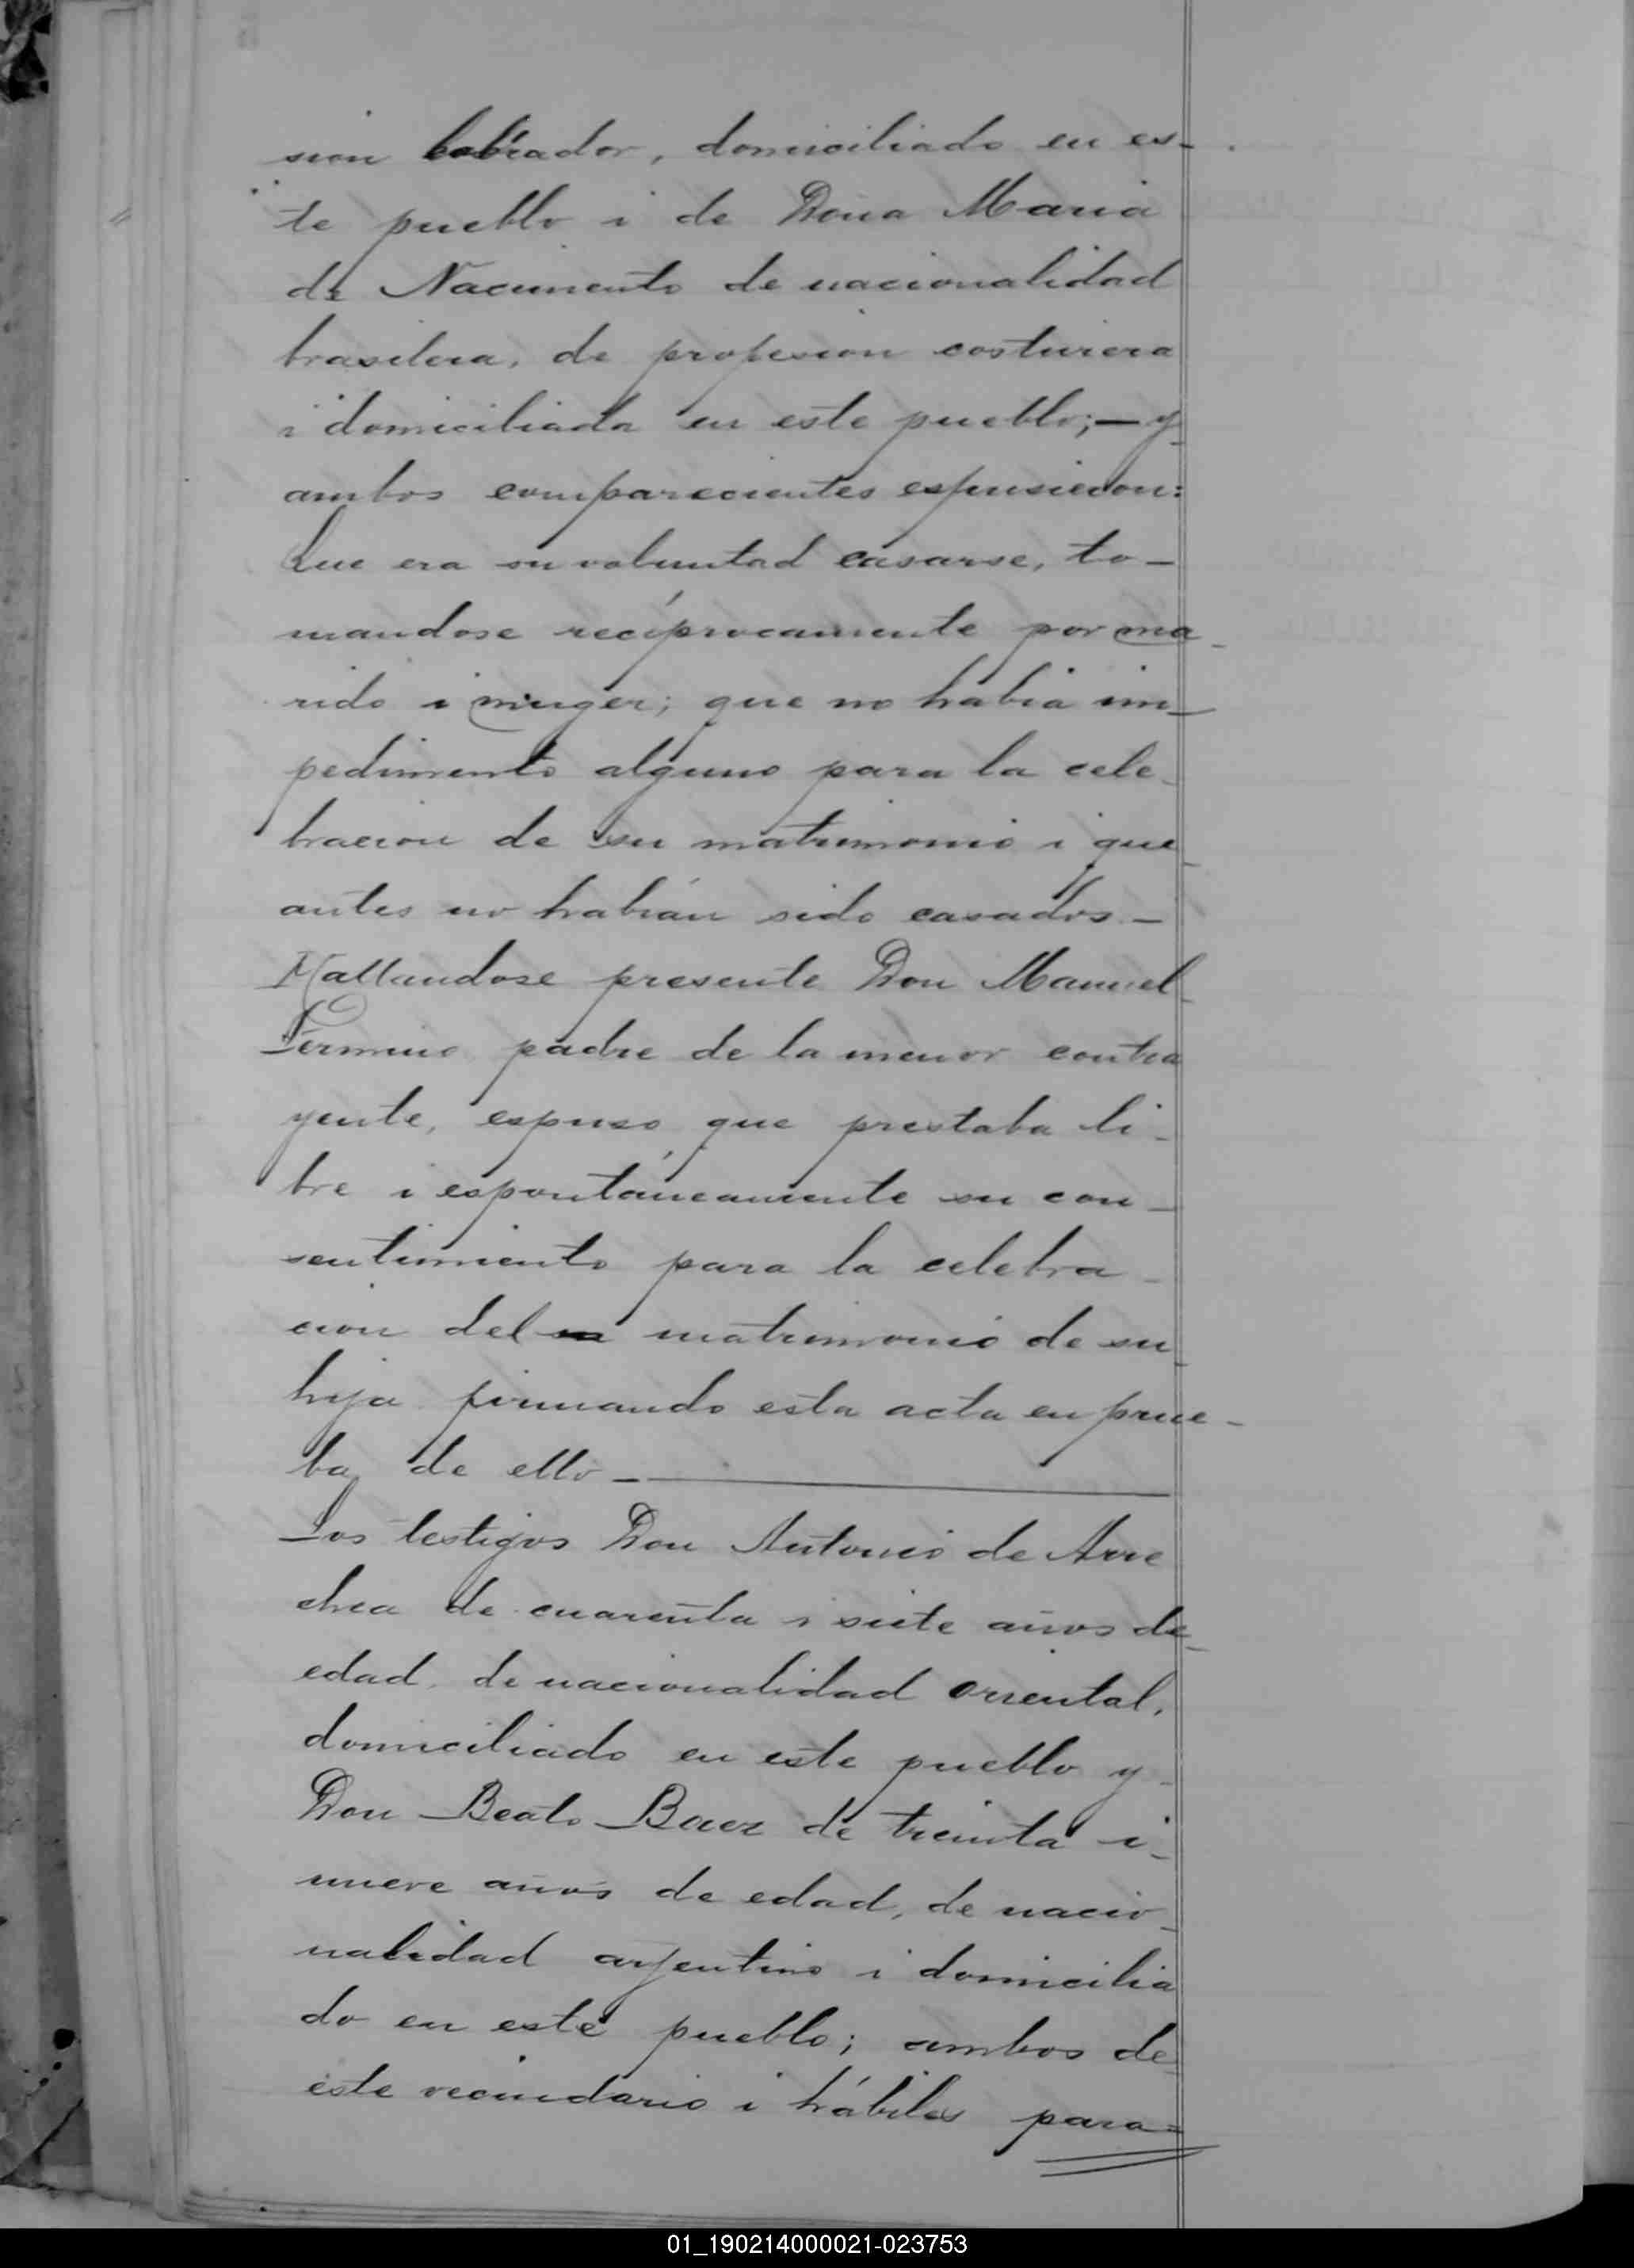 sion labrador, domiciliado en es-
te pueblo i de Doña Maria
de Nacimento de nacionalidad
brasilera, de profesion costurera
i domiciliada en este pueblo; — y
ambos comparecientes espusieron:
Que era su voluntad casarse, to-
mandose recíprocamente por ma-
rido i muger; que no habia im-
pedimento alguno para la cele-
bracion de su matrimonio i que
antes no habían sido casados. —
Hallandose presente Don Manuel
padre de la menor contra
yente, espuso que prestaba li-
bre i espontáneamente su con-
sentimiento para la celebra-
cion del matrimonio de su
hija firmando esta acta en prue-
ba de ello —
Los testigos Don Antonio de Arre
chea de cuarenta i siete años de
edad, de nacionalidad oriental,
domiciliado en este pueblo y
Don Beato Baez de treinta i
nueve años de edad, de nacio-
nalidad arjentino i domicilia
do en este pueblo; ambos de
este vecindario i hábiles para=
01_190214000021-023753